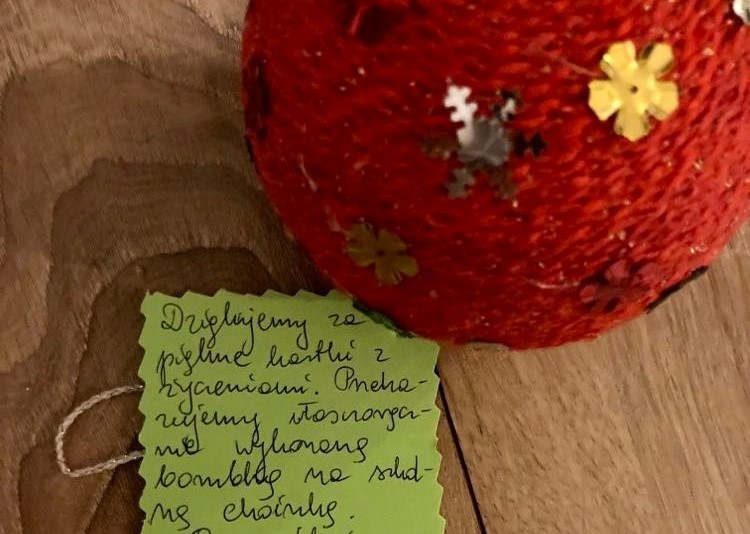 Dziękujemy za
piękne kartki z
życzeniami. Przeka-
zujemy własnoręcz-
nie wykonaną
bombkę na szkol-
ną choinkę.